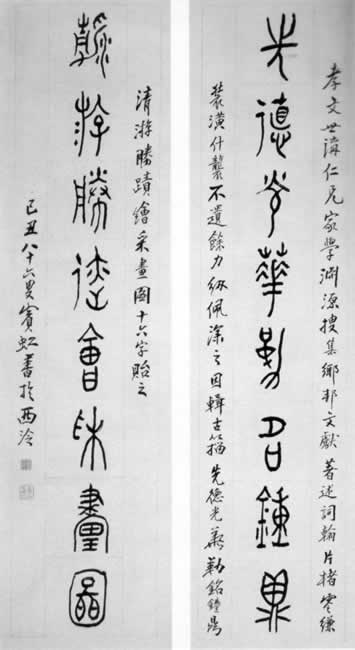 孝文世講仁兄家學淵源搜集鄉邦文獻著述詞翰片楮零縑
先德光華勒銘鐘鼎
裝潢什襲不遺餘力紉佩深之因輯古籀先德光華勒銘鐘鼎
清游勝蹟繪采畫圖十六字貽之
清游勝蹟繪采畫圖
己丑八十六叟賓虹書於西泠